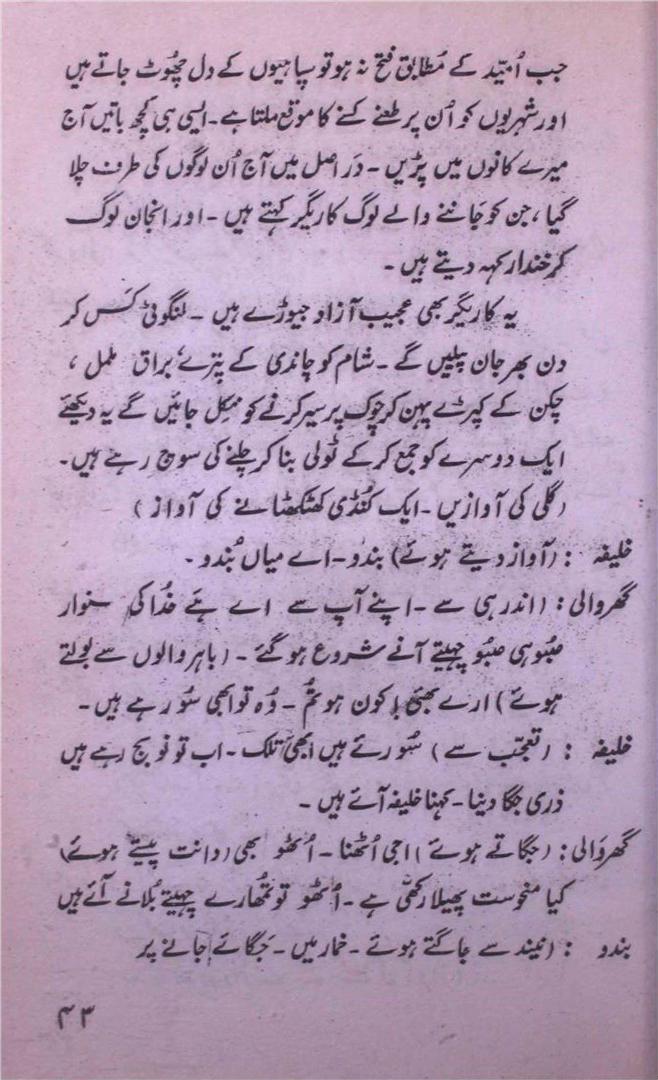 جب اُمیّد کے مُطابق فتح نہ ہو تو سپاہیوں کے دل چھُوٹ جاتے ہیں
اور شہریوں کو اُن پر طعنے کسنے کا موقع ملتا ہے۔ ایسی ہی کچھ باتیں آج
میرے کانوں میں پڑیں ۔ دَر اصل میں آج اُن لوگوں کی طرف چلا
گیا ، جن کو جَاننے والے لوگ کاریگر کہتے ہیں ۔ اور انجان لوگ
کرخندار کہہ دیتے ہیں ۔
یہ کاریگر بھی عجیب آزاد جیوڑے ہیں ۔ لنگوٹی کَس کر
دن بھر جان پیلیں گے ۔ شام کو چاندی کے پترے براق ململ ،
چکن کے کپڑے پہن کر چوک پر سیر کرنے کو نکل جائیں گے یہ دیکھئے
ایک دوسرے کو جمع کر کے ٹولی بنا کر چلنے کی سوچ رہے ہیں۔
(گلی کی آوازیں ۔ ایک کُنڈی کھٹکھٹانے کی آواز )
خلیفہ : (آواز دیتے ہوئے) بندو۔ اے میاں بُندو ۔
گھر والی : (اندر ہی سے ۔ اپنے آپ سے اے ہَے خُدا کی سنوار
صبُو ہی صبُو چہیتے آنے شروع ہو گئے ۔ (باہر والوں سے بولتے
ہوئے) ارے بھئی کون ہو تُم ۔ وُہ تو ابھی سُو رہے ہیں ۔
خلیفہ : (تعجّب سے ) سُو رئے ہیں ابھی تلک ۔ اب تو نو بج رہے ہیں
ذری جگا دینا ۔ کہنا خلیفہ آئے ہیں ۔
گھر والی : (جگاتے ہوئے ) اجی اُٹھنا ۔ اُٹھو بھی (دانت پیستے ہوئے)
کیا منحوست پھیلا رکھی ہے ۔ اُٹھو تو تُمھارے چہیتے بُلانے آئے ہیں
بندو : (نیند سے جاگتے ہوئے ۔ خمار میں ۔ جَگائے جانے پر
۴۳